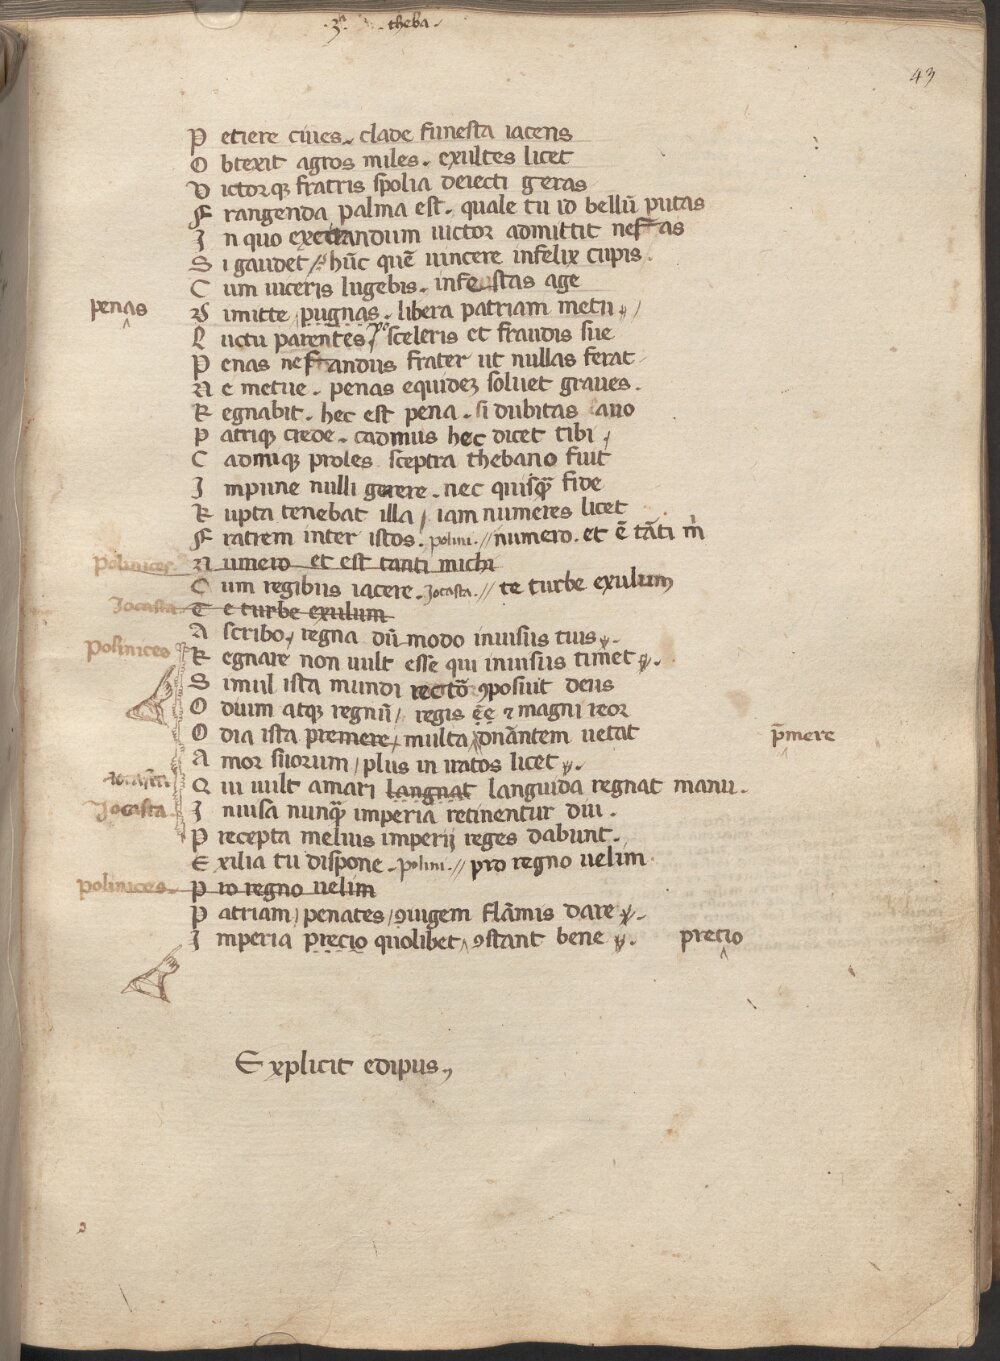 ·3ª· theba·
43
P etiere ciues. clade funesta iacens
O btexit agros miles. exultes licet
V ictorqꝫ fratris spolia deiecti geras
F rangenda palma est. quale tu id bellū putas
I n quo execrandum uictor admittit nefas
S i gaudet / hūc quē uincere infelix cupis.
C um uiceris lugebis. infestas age
penas
D imitte pugnas. libera patriam metu
L uctu parentes / sceleris et fraudis sue
P enas nefandus frater ut nullas ferat
N e metue. penas equideꝫ soluet graues.
R egnabit. hec est pena. si dubitas auo
P atriqꝫ crede. cadmus hec dicet tibi
C admiqꝫ proles sceptra thebano fuit
I mpune nulli gerere. nec quisqꝫ̄ fide
R upta tenebat illa / iam numeres licet
F ratrem inter istos. polini. // numero. et ē tāti m̄
polinices N umero et est tanti michi
C um regibus iacere. Jocasta. // te turbe exulum
Jocasta T e turbe exulum
A scribo, regna dū modo inuisus tuis
polinices R egnare non uult esse qui inuisus timet
S imul ista mundi rectō ꝯposuit deus
O dium atqꝫ regnū / regis ēē ⁊ magni reor
O dia ista premere multa dn̄antem uetat p̄mere
A mor suorum / plus in iratos licet
Q ui uult amari langnat languida regnat manu.
Jocasta I nuisa nunqꝫ̄ imperia retinentur diu.
P recepta melius imperij reges dabunt.
E xilia tu dispone. polini. // pro regno uelim.
polinices. P ro regno uelim
P atriam / penates / ꝯiugem flāmis dare
I mperia precio quolibet ꝯstant bene precio
Explicit edipus